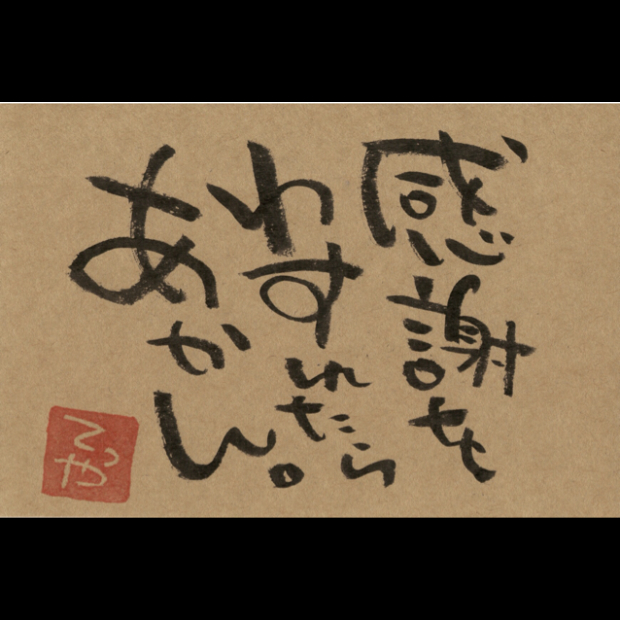 感謝を
わすれたら
あかん。